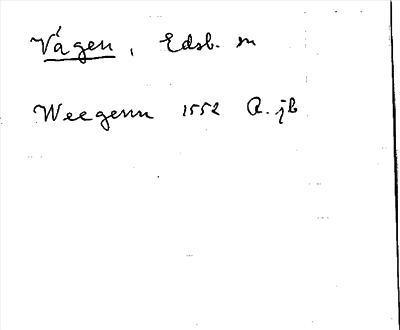 Vágen, Edsb. sn
Weegenn 1552 R. jb